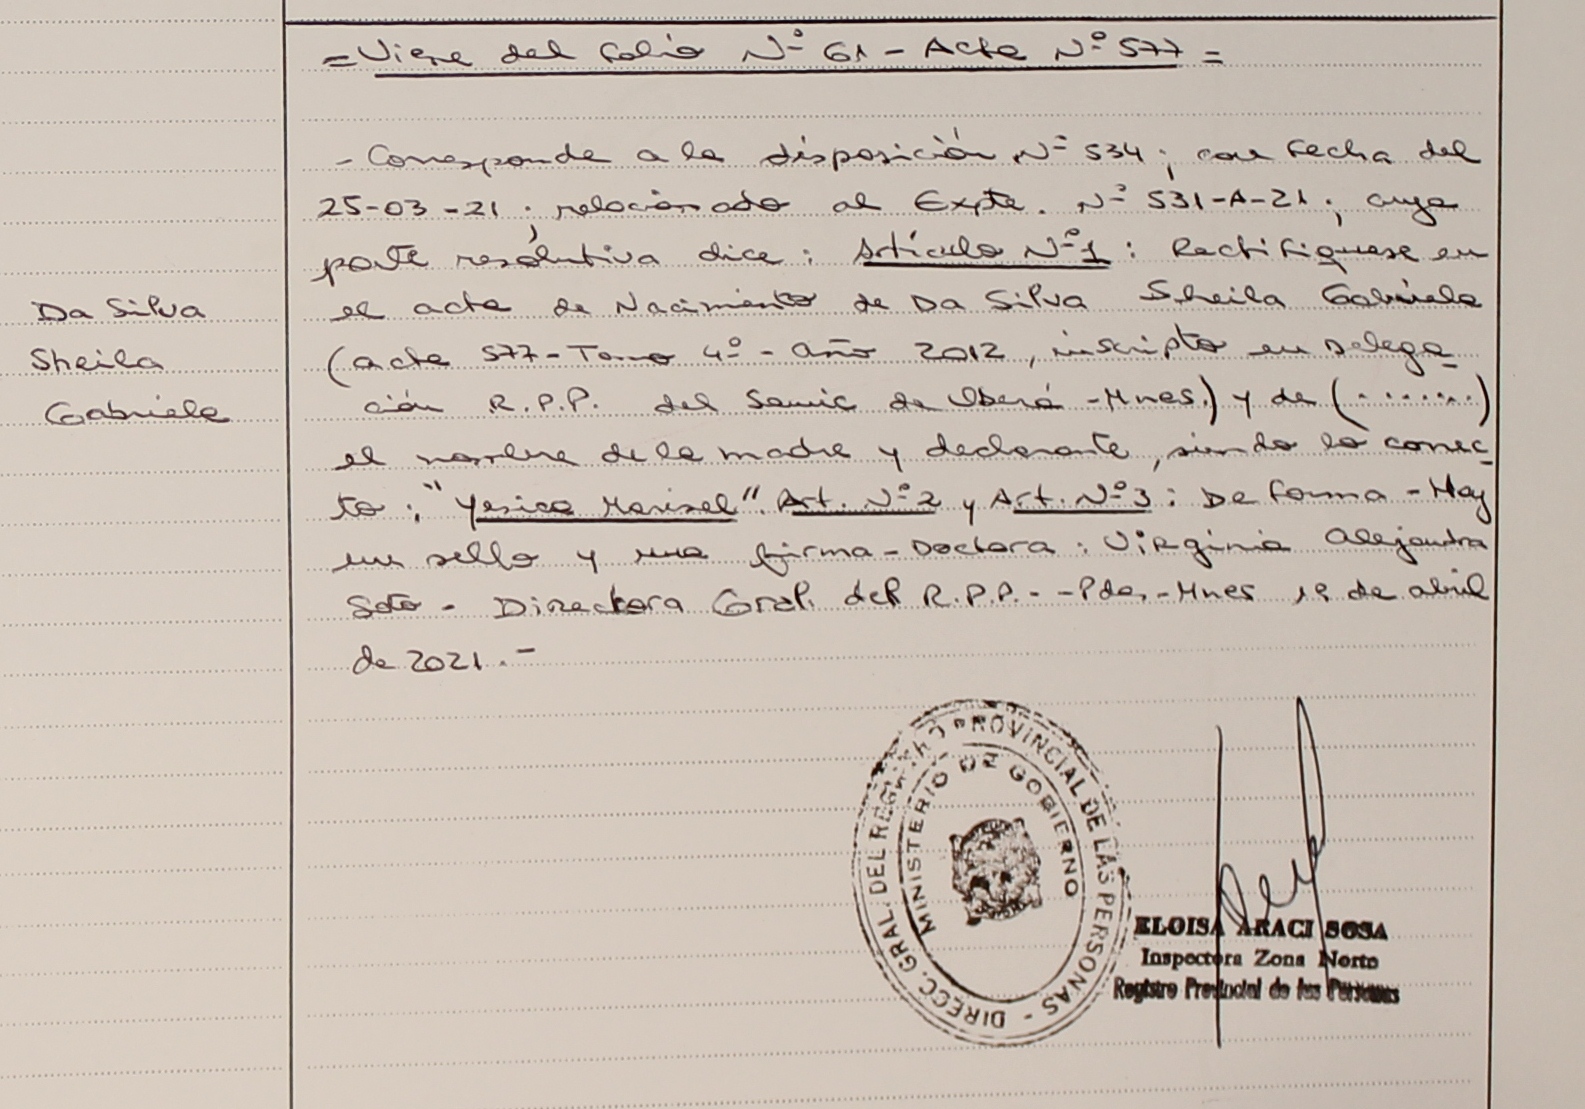 = Viene del Folio Nº 61 - Acta Nº 577 =
- Corresponde a la disposición Nº 534; con fecha del
25-03-21; relacionado al Expte. Nº 531-A-21; cuya
parte resolutiva dice: Artículo Nº1: Rectifíquese en
el acta de Nacimiento de Da Silva Sheila Gabriela
(acta 577-Tomo 4º-año 2012, inscripto en delega
ción R.P.P. del Samic de Oberá-Mnes.) y de (.......)
el nombre de la madre y declarante, siendo lo correc
to: "Yesica Marisel". Art. Nº2 y Art. Nº3: De forma - Hay
un sello y una firma - Doctora: Virginia Alejandra
Soto - Directora Gral. del R.P.P.- -Pdas-Mnes 19 de abril
de 2021.-
Da Silva
Sheila
Gabriela
DIRECC. GRAL. DEL REGISTRO PROVINCIAL DE LAS PERSONAS -
MINISTERIO DE GOBIERNO
ELOISA ARACI SOSA
Inspectora Zona Norte
Registro Provincial de las Personas